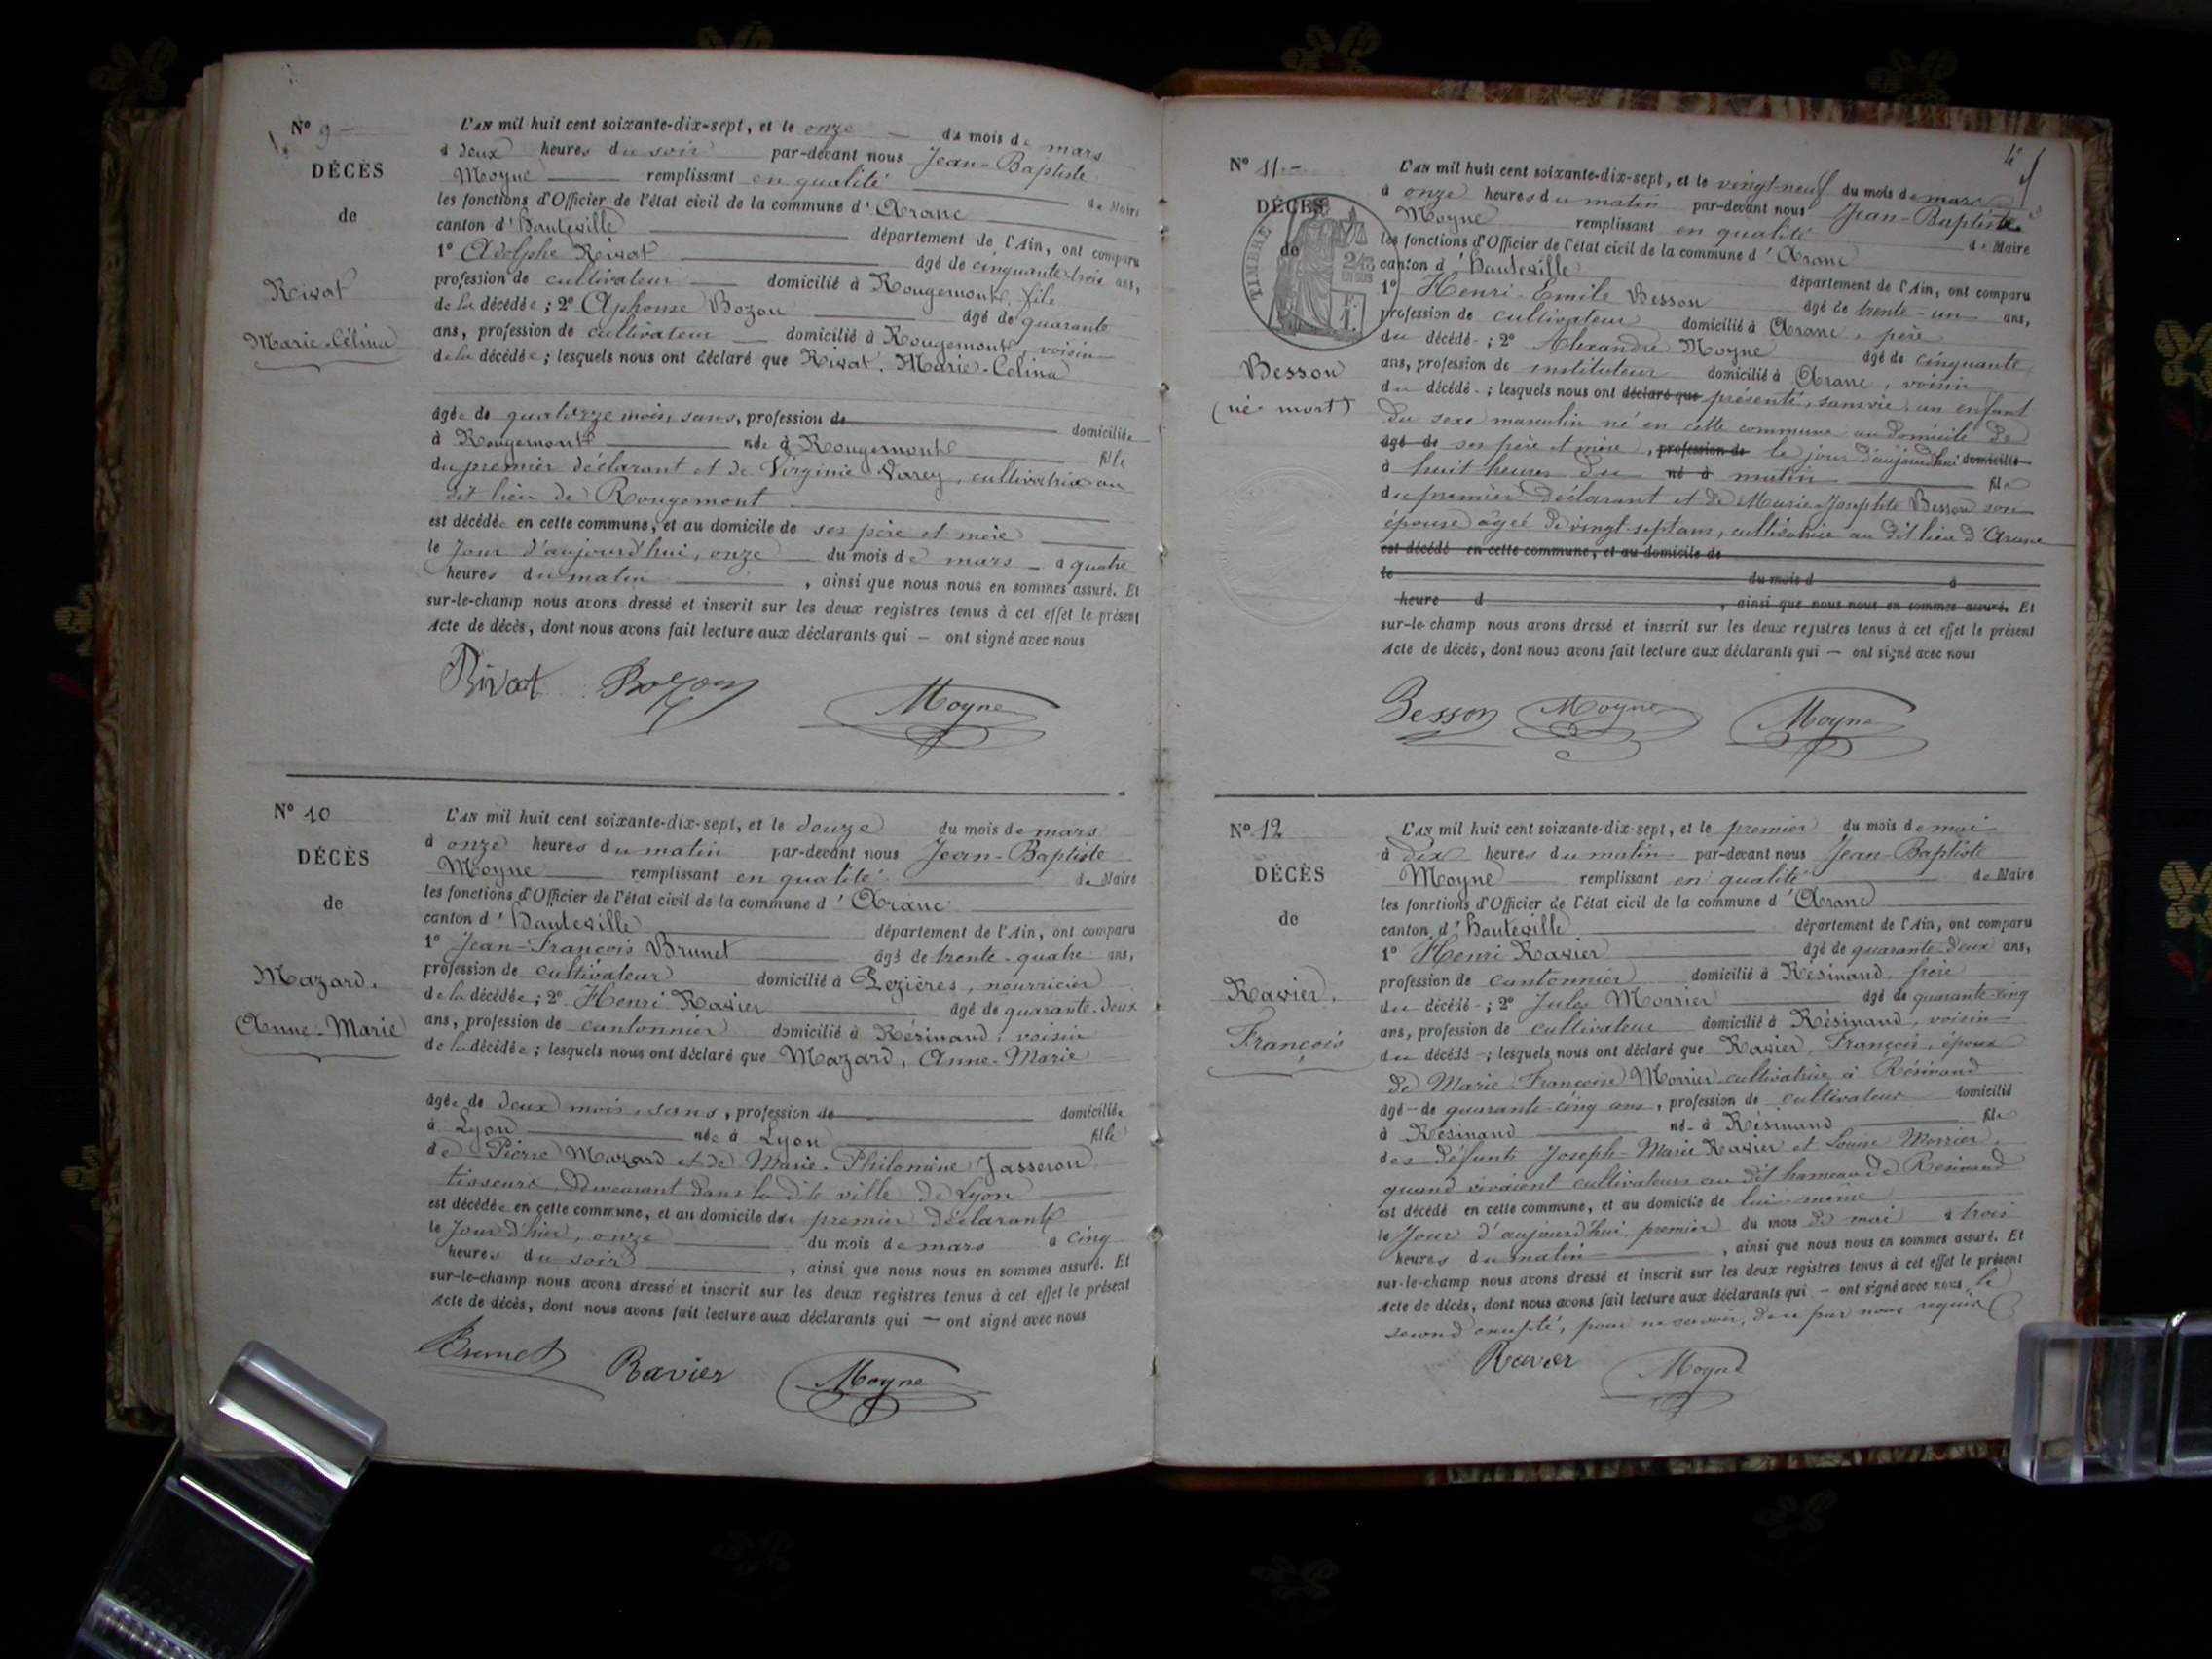 N° 9
DÉCÈS
de
Rivat
Marie-Célina
L'AN mil huit cent soixante-dix-sept, et le onze du mois de mars
à deux heures du soir par-devant nous Jean-Baptiste
Moyne remplissant en qualité de Maire
les fonctions d'Officier de l'état civil de la commune d'Aranc
canton d'Hauteville département de l'Ain, ont comparu
1° Adolphe Rivat âgé de cinquante-trois ans,
profession de cultivateur domicilié à Rougemont, père
de la décédée ; 2° Alphonse Bozon âgé de quarante
ans, profession de cultivateur domicilié à Rougemont voisin
de la décédée ; lesquels nous ont déclaré que Rivat, Marie-Célina
âgée de quatorze mois, sans, profession de domiciliée
à Rougemont née à Rougemont fille
du premier déclarant et de Virginie Varey, cultivatrice au
dit lieu de Rougemont
est décédée en cette commune, et au domicile de ses père et mère
le jour d'aujourd'hui, onze du mois de mars à quatre
heures du matin, ainsi que nous nous en sommes assuré. Et
sur-le-champ nous avons dressé et inscrit sur les deux registres tenus à cet effet le présent
Acte de décès, dont nous avons fait lecture aux déclarants qui — ont signé avec nous
Rivat Bozon Moyne
N° 10
DÉCÈS
de
Mazard,
Anne-Marie
L'AN mil huit cent soixante-dix-sept, et le douze du mois de mars
à onze heures du matin par-devant nous Jean-Baptiste
Moyne remplissant en qualité de Maire
les fonctions d'Officier de l'état civil de la commune d'Aranc
canton d'Hauteville département de l'Ain, ont comparu
1° Jean-François Brunet âgé de trente-quatre ans,
profession de cultivateur domicilié à Pezières, nourricier
de la décédée ; 2° Henri Ravier âgé de quarante-deux
ans, profession de cantonnier domicilié à Résinand, voisin
de la décédée ; lesquels nous ont déclaré que Mazard, Anne-Marie
âgée de deux mois, sans, profession de domiciliée
à Lyon née à Lyon fille
de Pierre Mazard et de Marie-Philomène Jasseron
tisseurs, demeurant dans la dite ville de Lyon
est décédée en cette commune, et au domicile du premier déclarant
le jour d'hier, onze du mois de mars à cinq
heures du soir, ainsi que nous nous en sommes assuré. Et
sur-le-champ nous avons dressé et inscrit sur les deux registres tenus à cet effet le présent
Acte de décès, dont nous avons fait lecture aux déclarants qui — ont signé avec nous
Brunet Ravier Moyne
N° 11
DÉCÈS
de
TIMBRE
Besson
(né mort)
L'AN mil huit cent soixante-dix-sept, et le vingt-neuf du mois de mars
à onze heures du matin par-devant nous Jean-Baptiste
Moyne remplissant en qualité de Maire
les fonctions d'Officier de l'état civil de la commune d'Aranc
canton d'Hauteville département de l'Ain, ont comparu
1° Henri-Emile Besson âgé de trente-un ans,
profession de cultivateur domicilié à Aranc, père
du décédé ; 2° Alexandre Moyne âgé de cinquante
ans, profession de instituteur domicilié à Aranc, voisin
du décédé ; lesquels nous ont déclaré que présenté, sans vie, un enfant
du sexe masculin né en cette commune au domicile de
âgé de ses père et mère, profession de le jour d'aujourd'hui domicilié
à huit heures du né à matin fils
du premier déclarant et de Marie-Josephte Besson son
épouse âgée de vingt-sept ans, cultivatrice au dit lieu d'Aranc
est décédé en cette commune, et au domicile de
le du mois d à
heure d, ainsi que nous nous en sommes assuré. Et
sur-le-champ nous avons dressé et inscrit sur les deux registres tenus à cet effet le présent
Acte de décès, dont nous avons fait lecture aux déclarants qui — ont signé avec nous
Besson Moyne Moyne
N° 12
DÉCÈS
de
Ravier,
François
L'AN mil huit cent soixante-dix-sept, et le premier du mois de mai
à dix heures du matin par-devant nous Jean-Baptiste
Moyne remplissant en qualité de Maire
les fonctions d'Officier de l'état civil de la commune d'Aranc
canton d'Hauteville département de l'Ain, ont comparu
1° Henri Ravier âgé de quarante-deux ans,
profession de cantonnier domicilié à Résinand, frère
du décédé ; 2° Jules Morrier âgé de quarante-cinq
ans, profession de cultivateur domicilié à Résinand, voisin
du décédé ; lesquels nous ont déclaré que Ravier, François, époux
de Marie Françoise Morrier cultivatrice à Résinand
âgé de quarante-cinq ans, profession de cultivateur domicilié
à Résinand né à Résinand fils
des défunts Joseph-Marie Ravier et Louise Morrier,
quand vivaient cultivateurs au dit hameau de Résinand
est décédé en cette commune, et au domicile de lui-même
le jour d'aujourd'hui premier du mois de mai à trois
heures du matin, ainsi que nous nous en sommes assuré. Et
sur-le-champ nous avons dressé et inscrit sur les deux registres tenus à cet effet le présent
Acte de décès, dont nous avons fait lecture aux déclarants qui — ont signé avec nous, le
second excepté, pour ne savoir, de ce par nous requis
Ravier Moyne